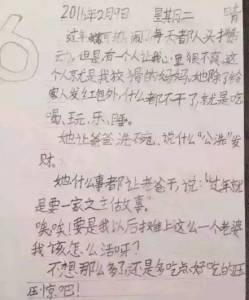 2016年2月9日 星期二 晴
过年可热闹了每天都人头攒
云，但是有一个人让我心里很不爽，这
个人就是我的妈妈，她除了给
家人发红包外，什么都不干了，就是吃
喝、玩、乐、睡。
她让爸爸洗碗，说什么“公洗”发
财。
她什么事都让老爸干，说：“过年就
是要一家之主做事。”
唉唉！要是我以后摊上这么一个老婆
我该怎么活呀？
不想那么多了，还是多吃点好吃的压
压惊吧！